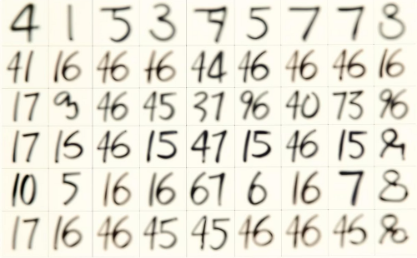 4 1 5 3 7 5 7 7 8
41 16 46 46 44 46 46 46 16
17 93 46 45 37 96 40 73 96
17 16 46 15 47 15 46 15
10 5 16 16 67 6 16 7 8
17 16 46 45 45 46 46 45